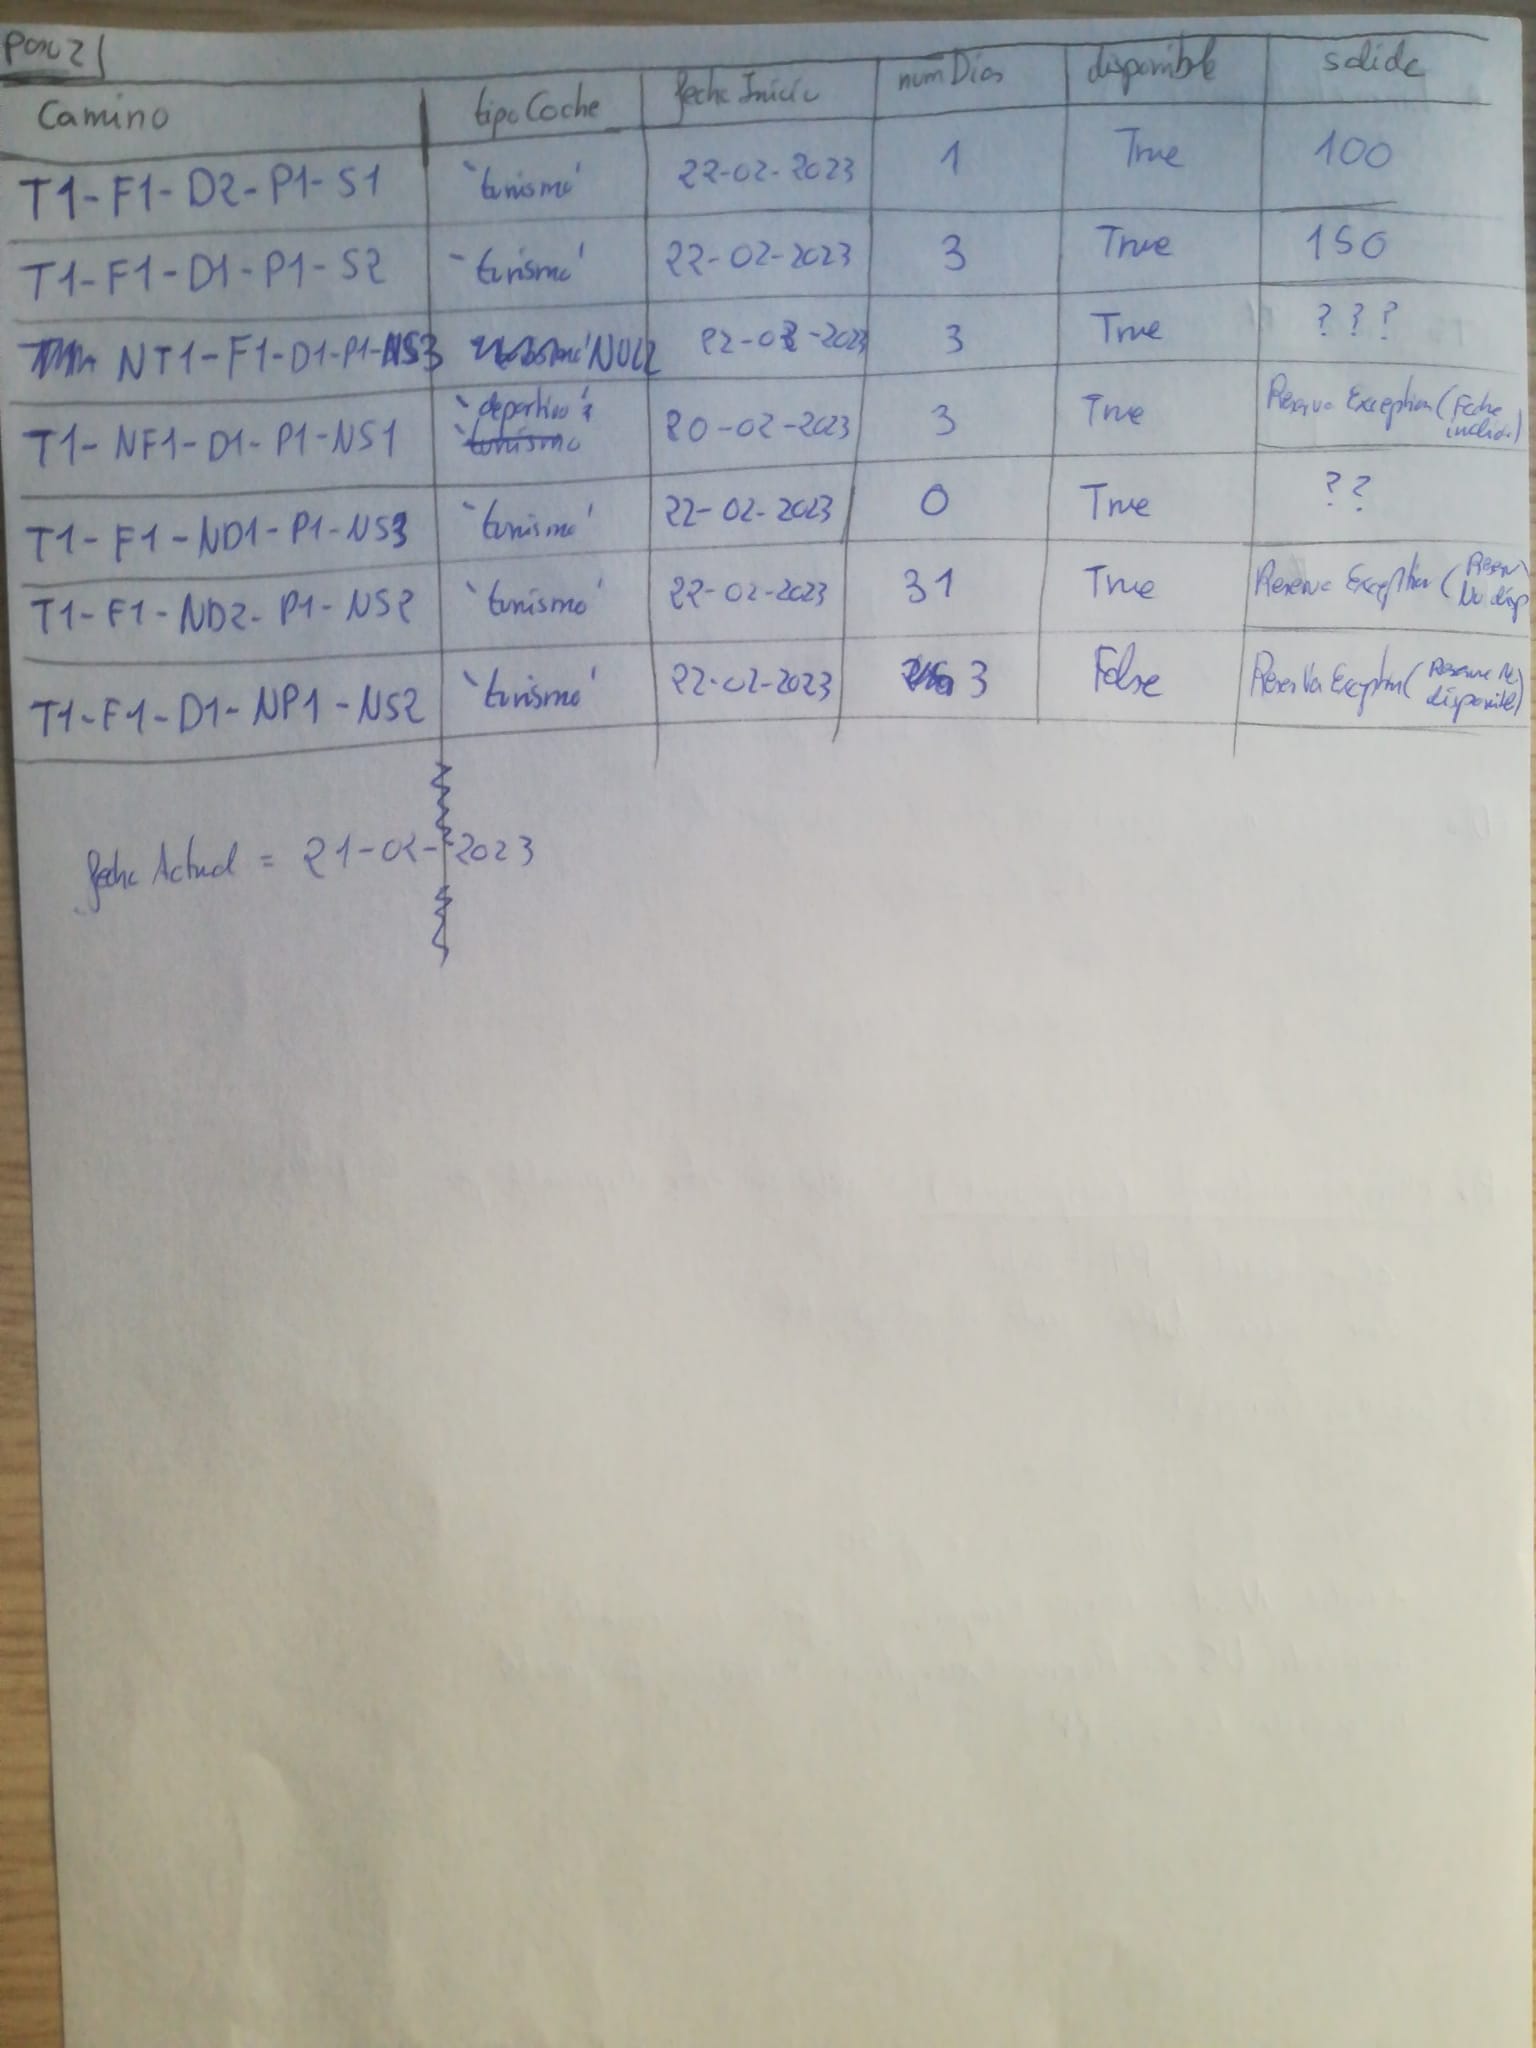 Paso 2
Camino tipo Coche fecha Inicio num Dias disponible salida
T1-F1-D2-P1-S1 `turismo' 22-02-2023 1 True 100
T1-F1-D1-P1-S2 `turismo' 22-02-2023 3 True 150
NT1-F1-D1-P1-NS3 NULL 22-02-2023 3 True ???
T1-NF1-D1-P1-NS1 `deportivo' turismo 20-02-2023 3 True Reserva Exception (Fecha
T1-F1-ND1-P1-NS3 `turismo' 22-02-2023 0 True ??
T1-F1-ND2-P1-NS2 `turismo' 22-02-2023 31 True Reserva Exception (Reserv No disp
T1-F1-D1-NP1-NS2 `turismo' 22-02-2023 3 False Reserva Exception (Reserva No disponible)
fecha Actual = 21-02-2023